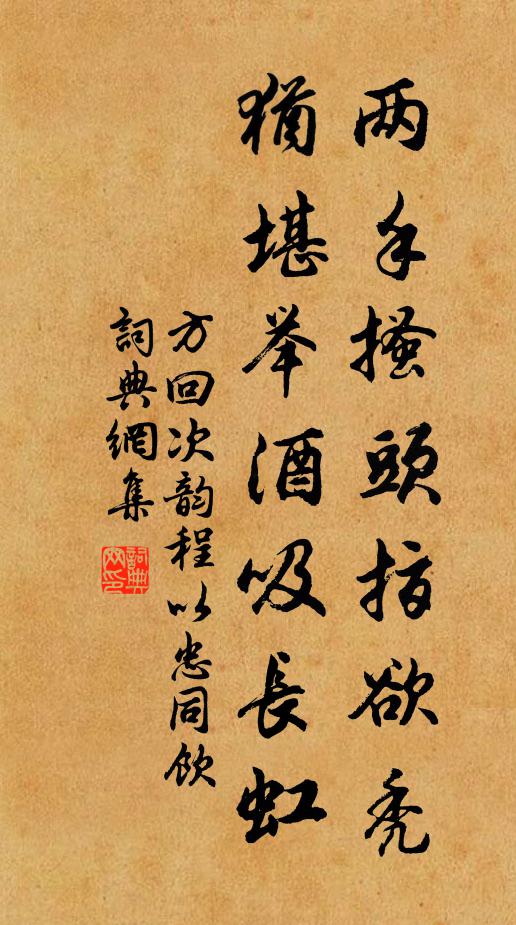 两手搔頭指欲秃
猶堪举酒吸長虹
方回次韵程以忠同飲
詞典網集
詞典网印